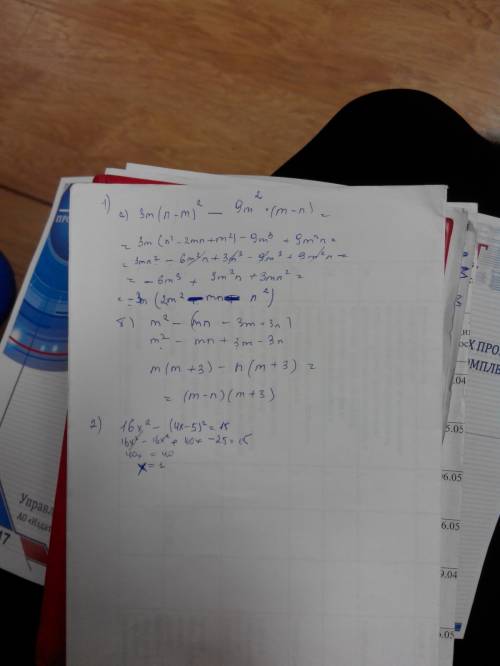 1)
а) 3m(n-m)² - 9m²·(m-n) =
= 3m(n²-2mn+m²) - 9m³ + 9m²n =
= 3mn² - 6m²n + 3m³ - 9m³ + 9m²n =
= -6m³ + 3m²n + 3mn² =
= -3m(2m² - mn - n²)
б) m² - (mn - 3m + 3n)
m² - mn + 3m - 3n
m(m+3) - n(m+3) =
= (m-n)(m+3)
2) 16x² - (4x-5)² = 15
16x² - 16x² + 40x - 25 = 15
40x = 40
x = 1
Управ
АО «Издат
17
6.05
06.05
9.04
6.05